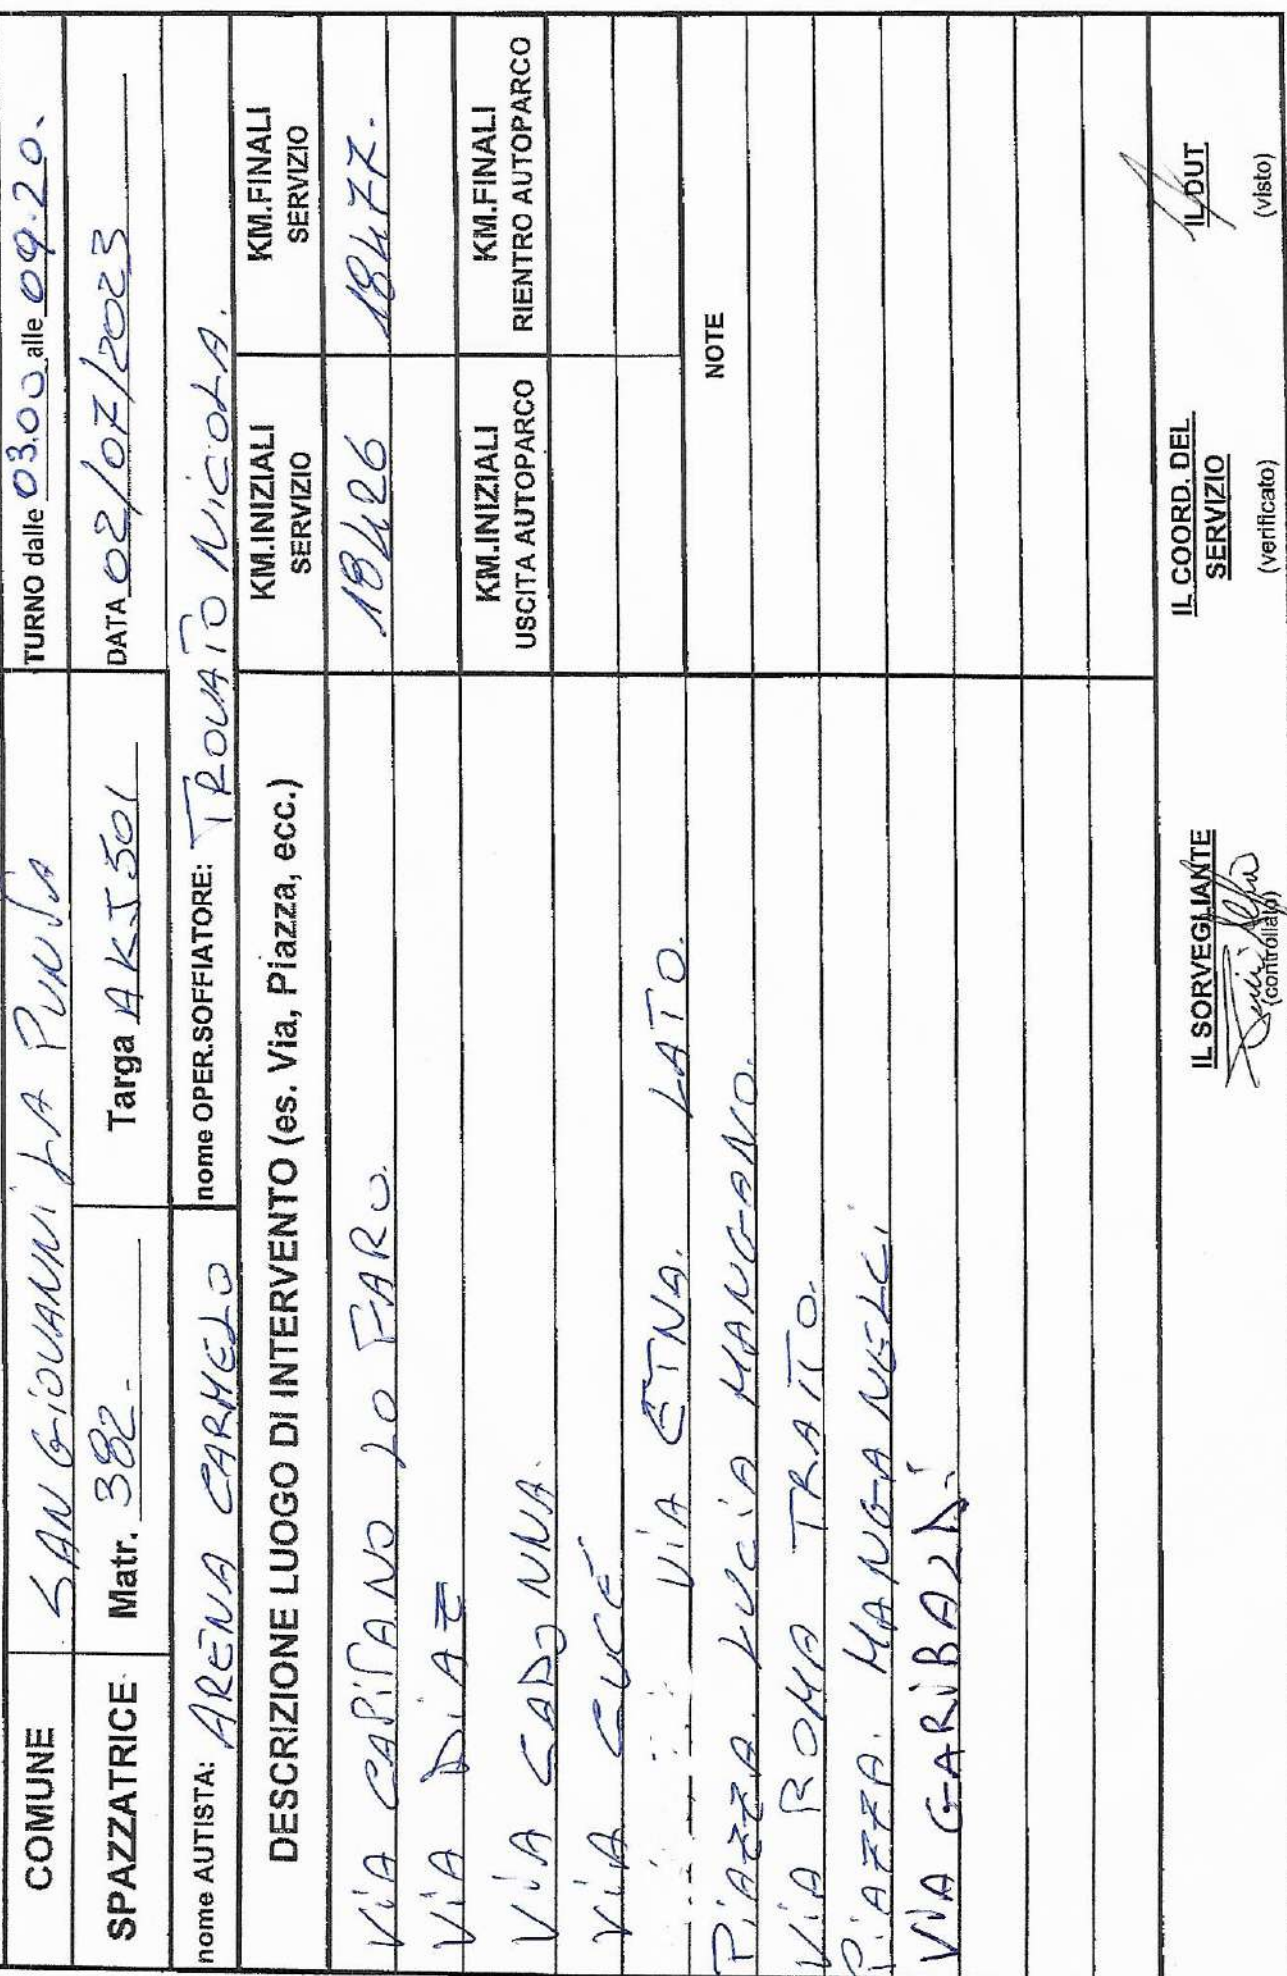 COMUNE SAN GIOVANNI LA PUNTA TURNO dalle 03.00 alle 09.20.
SPAZZATRICE Matr. 382- Targa AKJ501 DATA 02/07/2023
nome AUTISTA: ARENA CARMELO nome OPER.SOFFIATORE: TROVATO NICOLA.
DESCRIZIONE LUOGO DI INTERVENTO (es. Via, Piazza, ecc.) KM.INIZIALI SERVIZIO KM.FINALI SERVIZIO
VIA CAPITANO LO FARO. 18426 18477.
VIA DIAZ
VIA CADONNA. KM.INIZIALI USCITA AUTOPARCO KM.FINALI RIENTRO AUTOPARCO
VIA CUCÉ
VIA ETNA. LATO.
PIAZZA LUCIA MANGANO. NOTE
VIA ROMA TRATTO.
PIAZZA. MANGANELLI
VIA GARIBALDI
IL SORVEGLIANTE IL COORD. DEL SERVIZIO IL DUT
(controllato) (verificato) (visto)